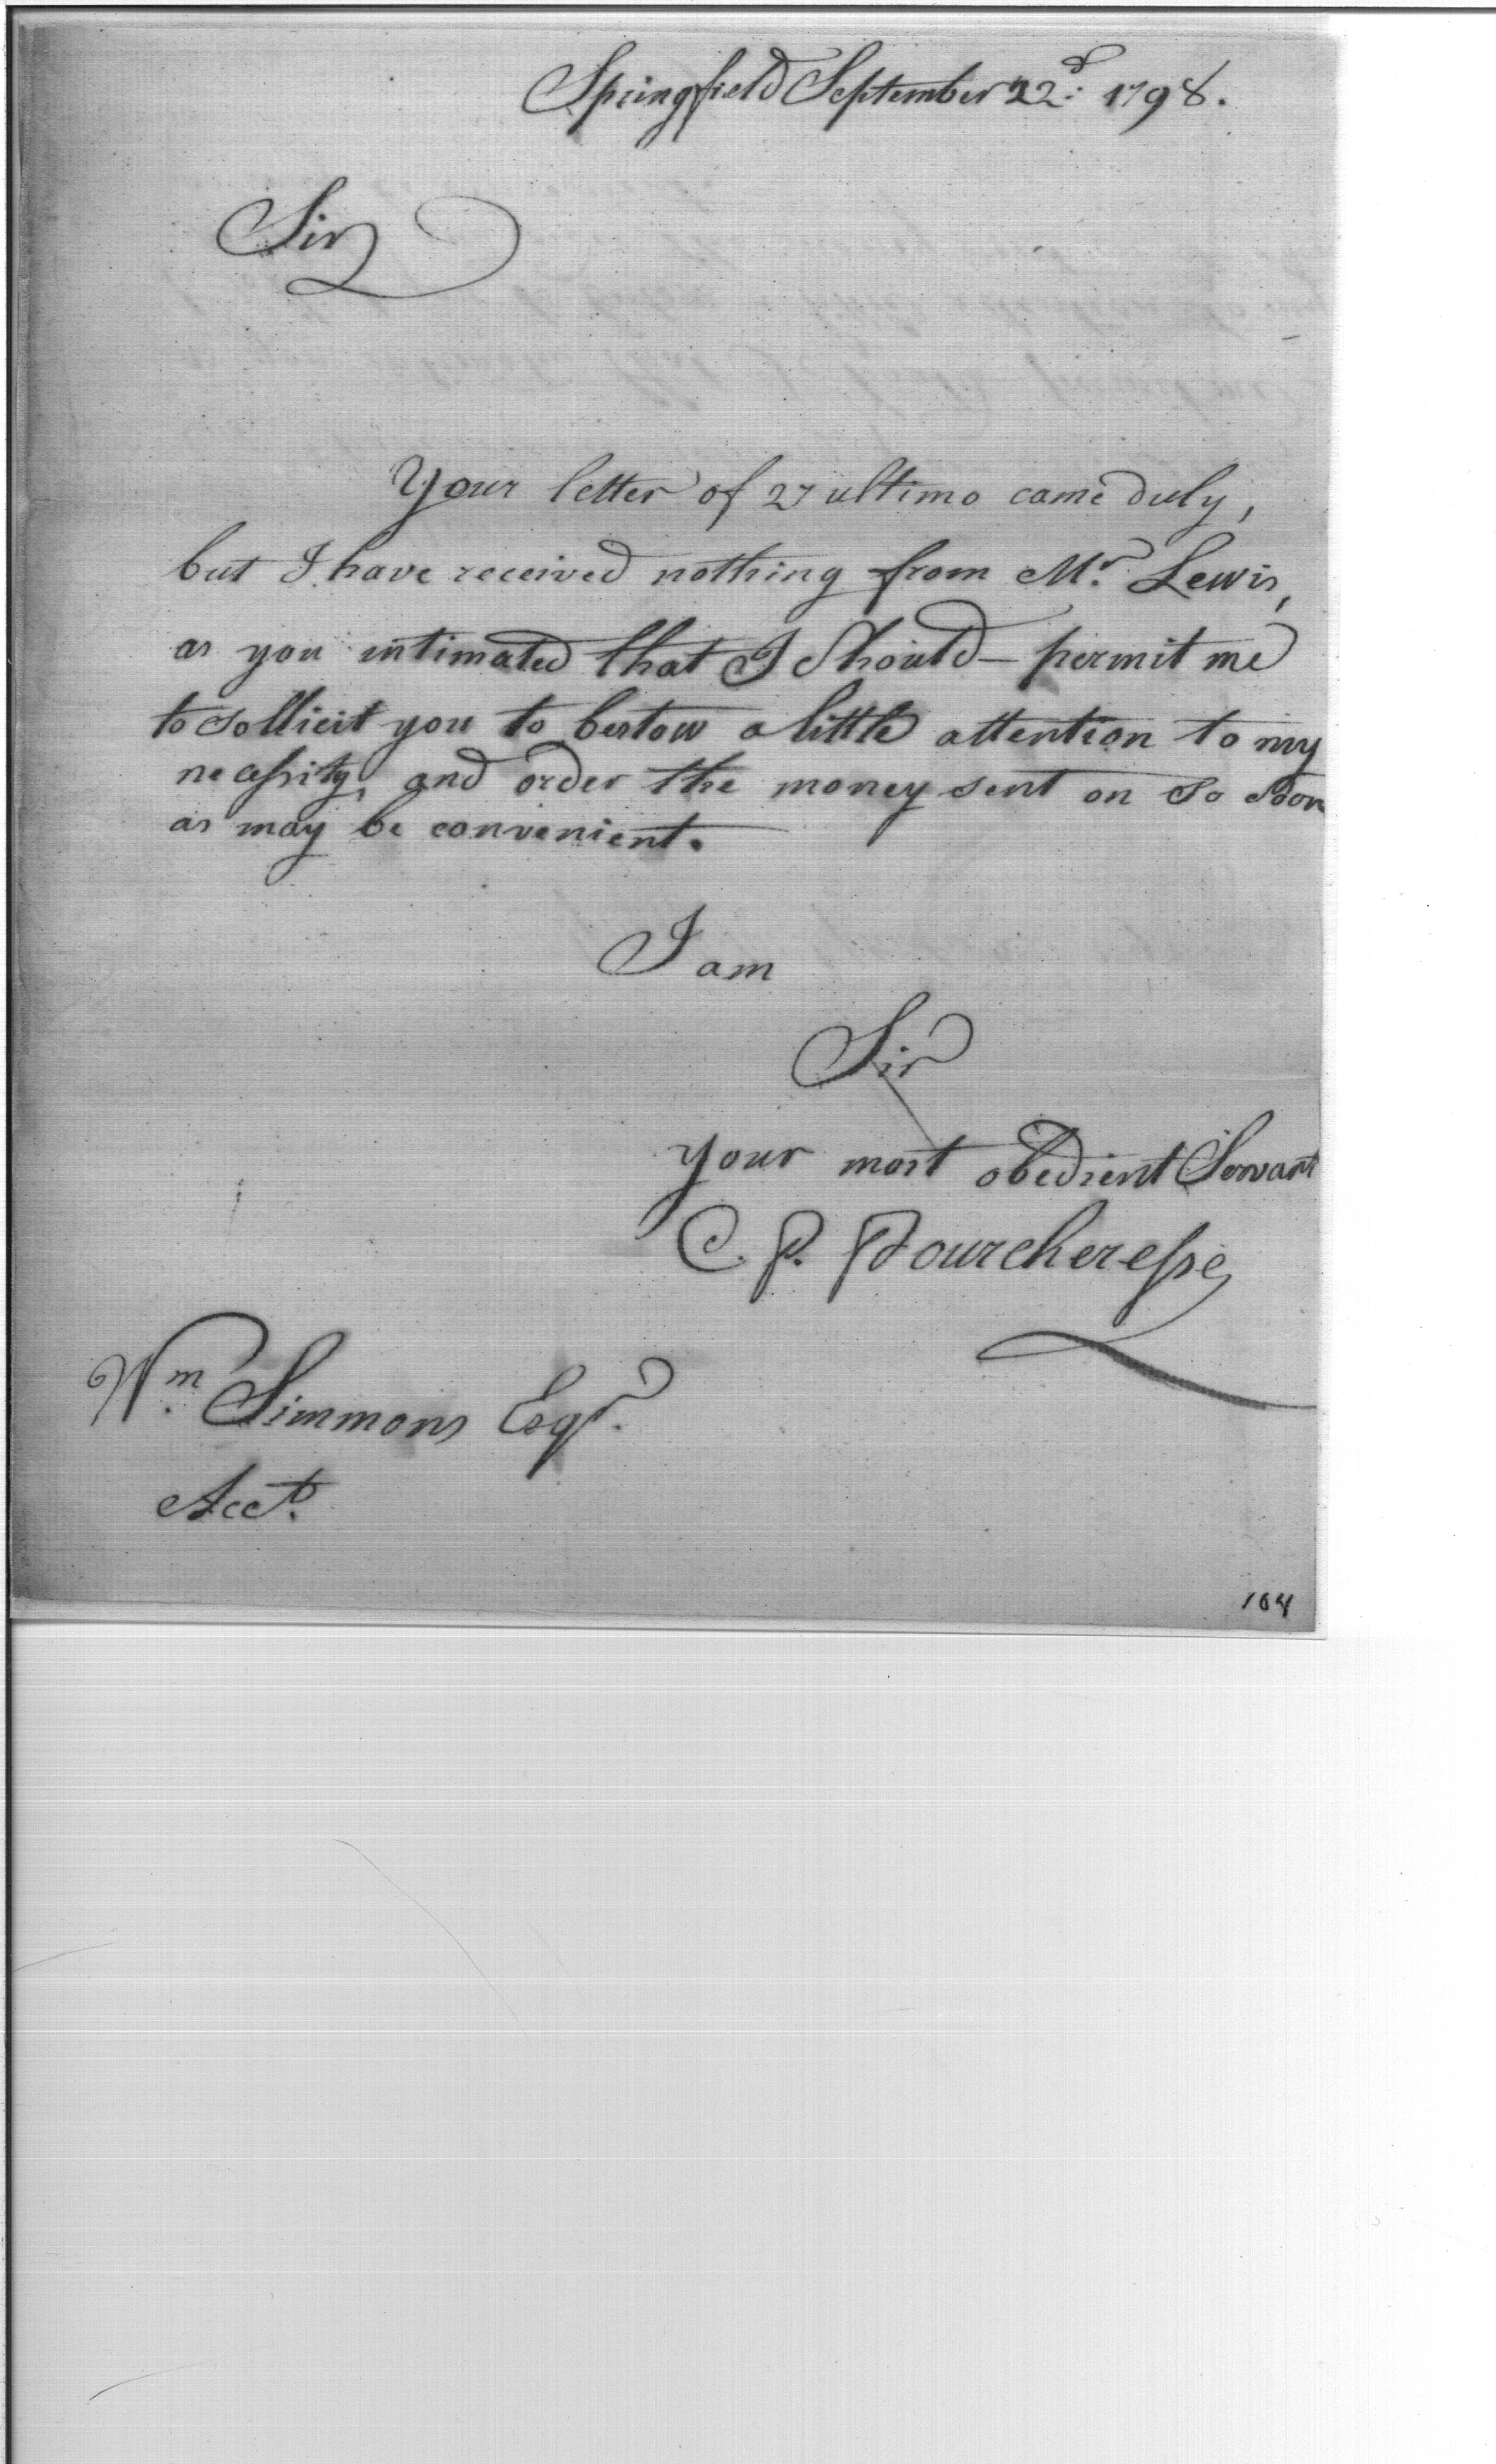 Springfield September 22.d 1798.
Sir
Your letter of 27 ultimo came duly,
but I have received nothing from Mr. Lewis,
as you intimated that I Should — permit me
to sollicit you to bestow a little attention to my
necessity, and order the money sent on so soon
as may be convenient.
I am
Sir
your most obedient Servant
C. P. Bourcheresse
Wm. Simmons Esqr.
Acct.
104